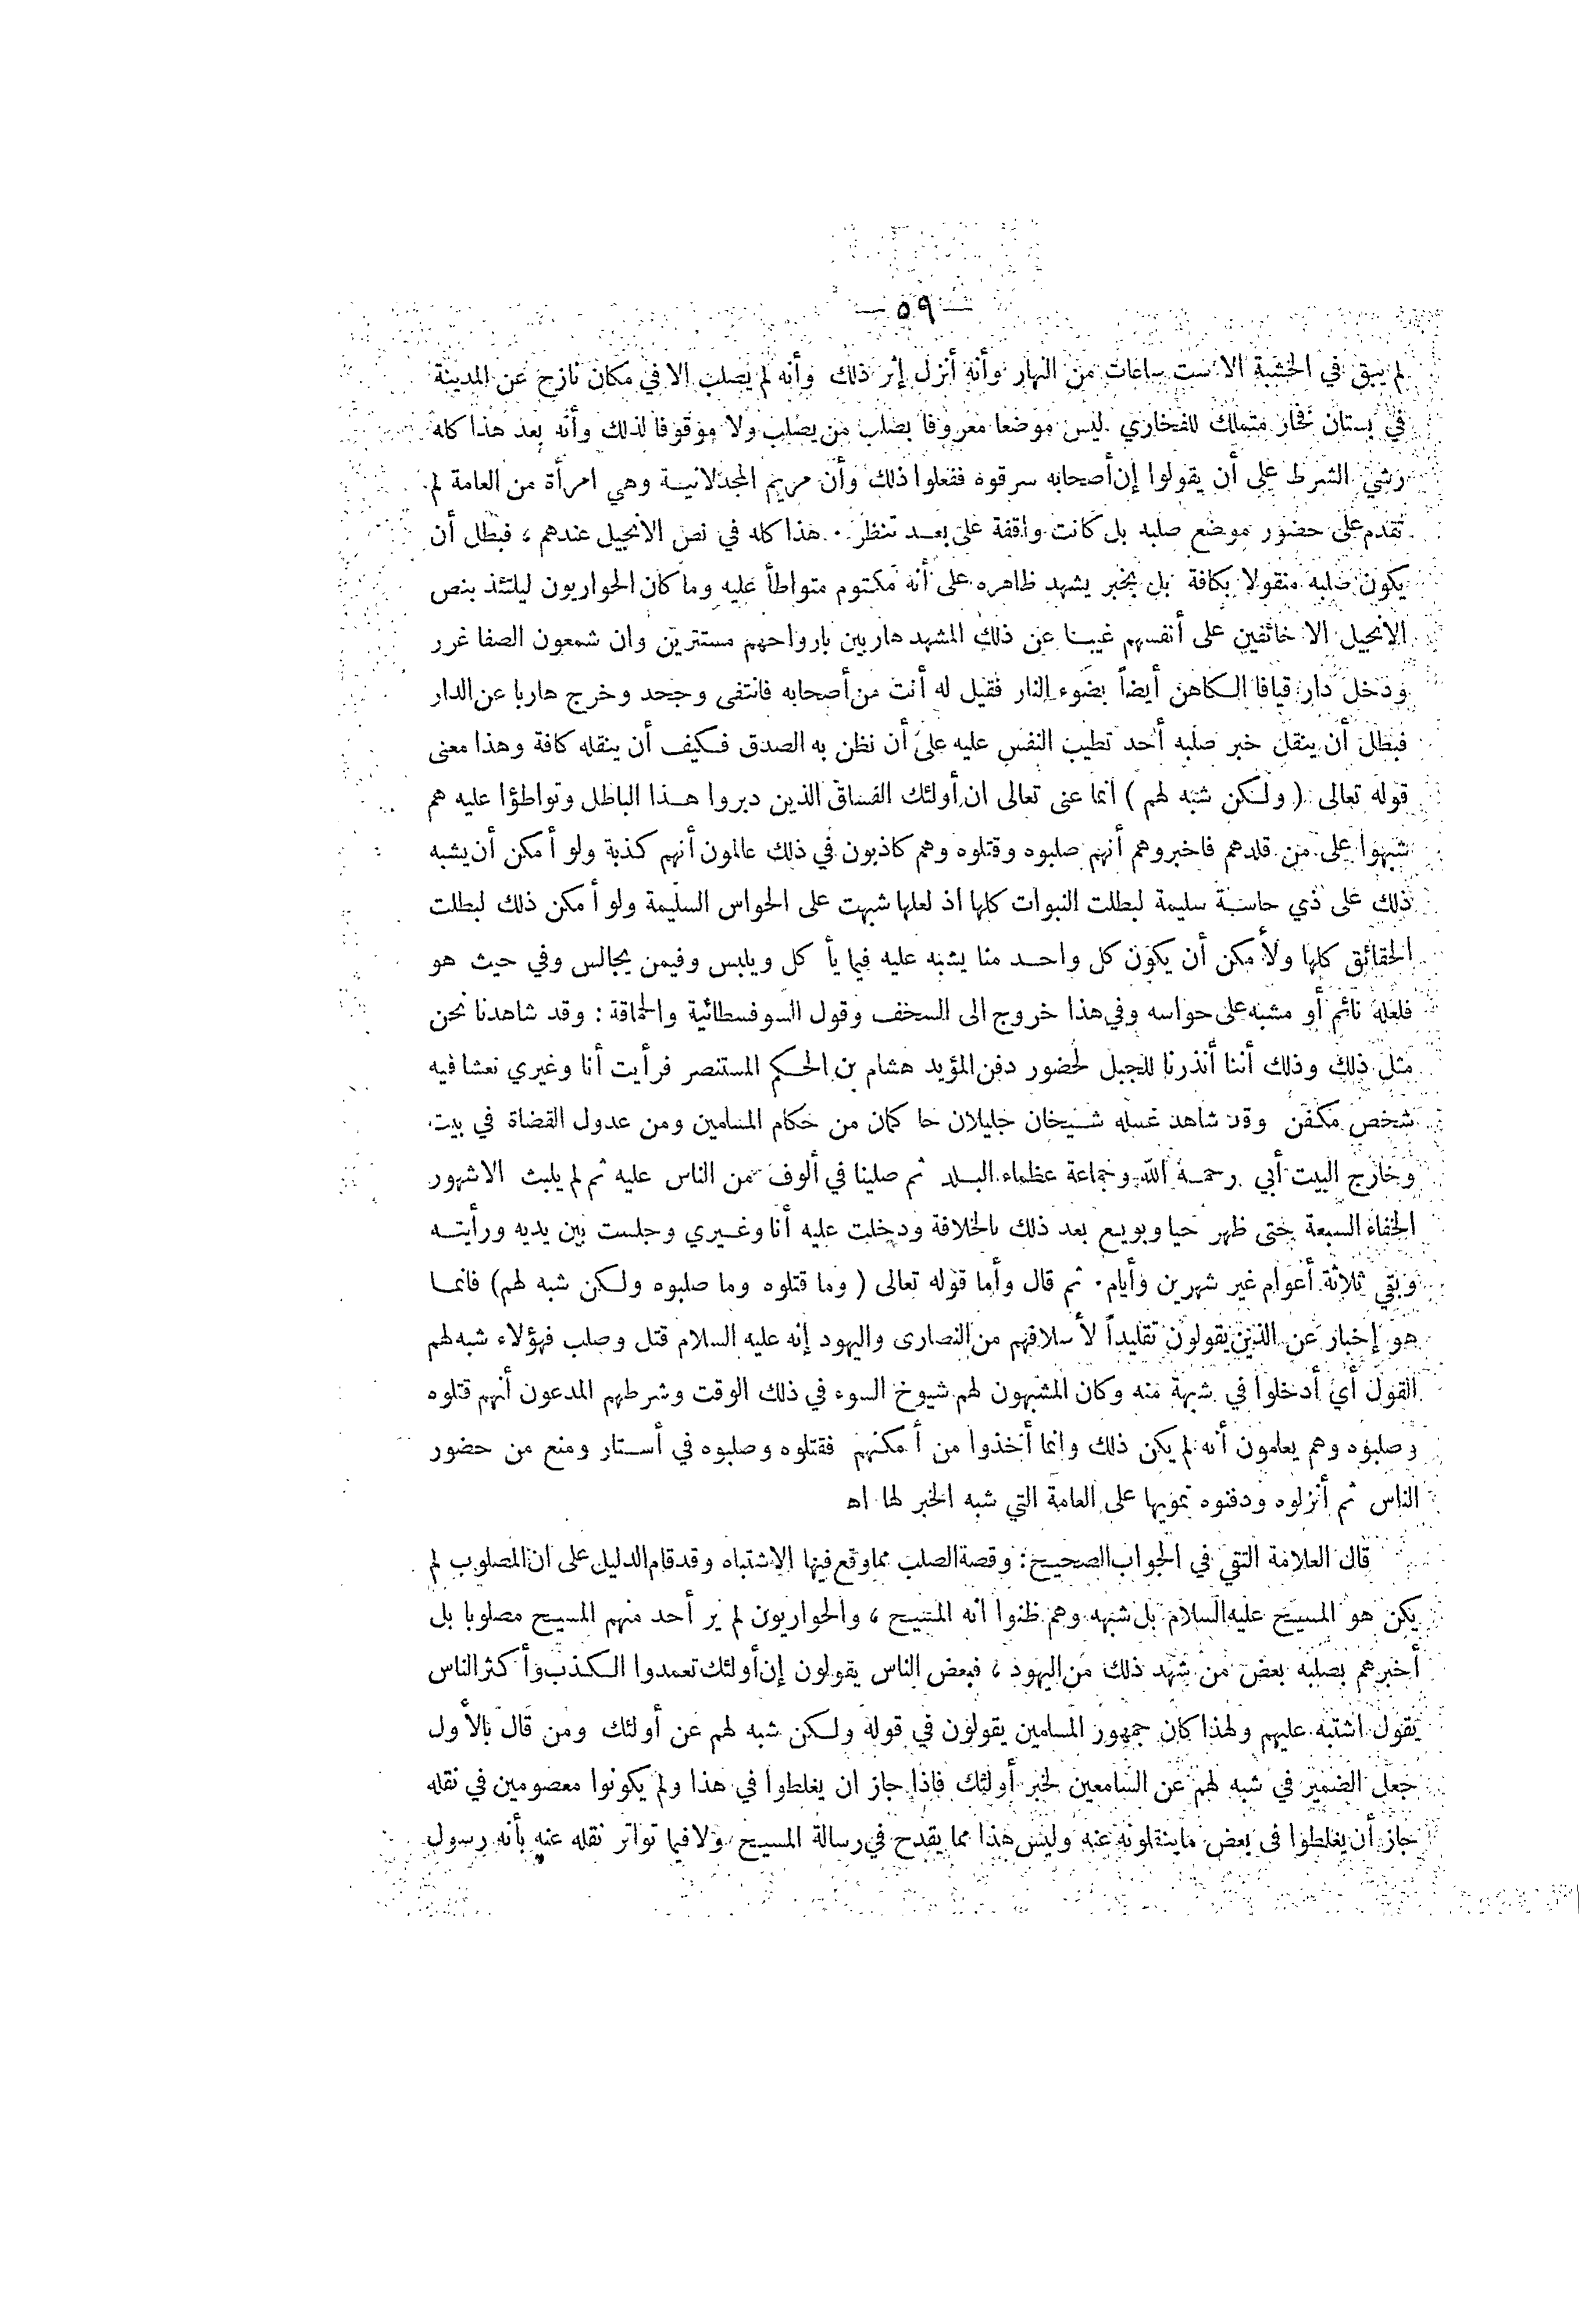 — ٥٩ —
لم يبق في الخشبة الا ست ساعات من النهار وأنه أنزل إثر ذلك وأنه لم يصلب الا في مكان نازح عن المدينة
في بستان فخار متملك للفخاري ليس موضعا معروفا بصلب من يصلب ولا موقوفا لذلك وأنه بعد هذا كله
رشي الشرط على أن يقولوا إن أصحابه سرقوه ففعلوا ذلك وأن مريم المجدلانيـة وهي امرأة من العامة لم
تقدم على حضور موضع صلبه بل كانت واقفة على بعـد تنظر . هذا كله في نص الانجيل عندهم ، فبطل أن
يكون صلبه منقولا بكافة بل بخبر يشهد ظاهره على أنه مكتوم متواطأ عليه وما كان الحواريون ليلتئذ بنص
الانجيل الا خائفين على أنفسهم غيبـا عن ذلك المشهد هاربين بارواحهم مستترين وان شمعون الصفا غرر
ودخل دار قيافا الـكاهن أيضاً بضوء النار فقيل له أنت من أصحابه فانتفى وجحد وخرج هاربا عن الدار
فبطل أن ينقل خبر صلبه أحد تطيب النفس عليه على أن نظن به الصدق فـكيف أن ينقله كافة وهذا معنى
قوله تعالى ( ولـكن شبه لهم ) انما عنى تعالى ان أولئك الفساق الذين دبروا هـذا الباطل وتواطؤا عليه هم
شبهوا على من قلدهم فاخبروهم أنهم صلبوه وقتلوه وهم كاذبون في ذلك عالمون أنهم كذبة ولو أمكن أن يشبه
ذلك على ذي حاسـة سليمة لبطلت النبوات كلها اذ لعلها شبهت على الحواس السليمة ولو أمكن ذلك لبطلت
الحقائق كلها ولأمكن أن يكون كل واحـد منا يشبه عليه فيما يأكل ويلبس وفيمن يجالس وفي حيث هو
فلعله نائم أو مشبه على حواسه وفي هذا خروج الى السخف وقول السوفسطائية والحماقة : وقد شاهدنا نحن
مثل ذلك وذلك أننا أنذرنا للجبل لحضور دفن المؤيد هشام بن الحـكم المستنصر فرأيت أنا وغيري نعشا فيه
شخص مكفن وقد شاهد غسله شـيخان جليلان حاكمان من حكام المسلمين ومن عدول القضاة في بيت
وخارج البيت أبي رحمـه الله وجماعة عظماء البـلد ثم صلينا في ألوف من الناس عليه ثم لم يلبث الا شهور
الخفاء السبعة حتى ظهر حيا وبويـع بعد ذلك بالخلافة ودخلت عليه أنا وغـيري وجلست بين يديه ورأيتـه
وبقي ثلاثة أعوام غير شهرين وأيام . ثم قال وأما قوله تعالى ( وما قتلوه وما صلبوه ولـكن شبه لهم) فانمـا
هو إخبار عن الذين يقولون تقليداً لأسلافهم من النصارى واليهود إنه عليه السلام قتل وصلب فهؤلاء شبه لهم
القول أي أدخلوا في شبهة منه وكان المشبهون لهم شيوخ السوء في ذلك الوقت وشرطهم المدعون أنهم قتلوه
وصلبوه وهم يعلمون أنه لم يكن ذلك وانما أخذوا من أمكنهم فقتلوه وصلبوه في أسـتار ومنع من حضور
الناس ثم أنزلوه ودفنوه تمويها على العامة التي شبه الخبر لها اه
قال العلامة التقي في الجواب الصحيح : وقصة الصلب مما وقع فيها الاشتباه وقد قام الدليل على ان المصلوب لم
يكن هو المسيح عليه السلام بل شبهه وهم ظنوا انه المسيح ، والحواريون لم ير أحد منهم المسيح مصلوبا بل
أخبرهم بصلبه بعض من شهد ذلك من اليهود ، فبعض الناس يقولون إن أولئك تعمدوا الـكذب وأكثر الناس
يقول اشتبه عليهم ولهذا كان جمهور المسلمين يقولون في قوله ولـكن شبه لهم عن أولئك ومن قال بالأول
جعل الضمير في شبه لهم عن السامعين لخبر أولئك فاذا جاز ان يغلطوا في هذا ولم يكونوا معصومين في نقله
جاز أن يغلطوا في بعض ما ينقلونه عنه وليس هذا مما يقدح في رسالة المسيح ولا فيما تواتر نقله عنه بأنه رسول